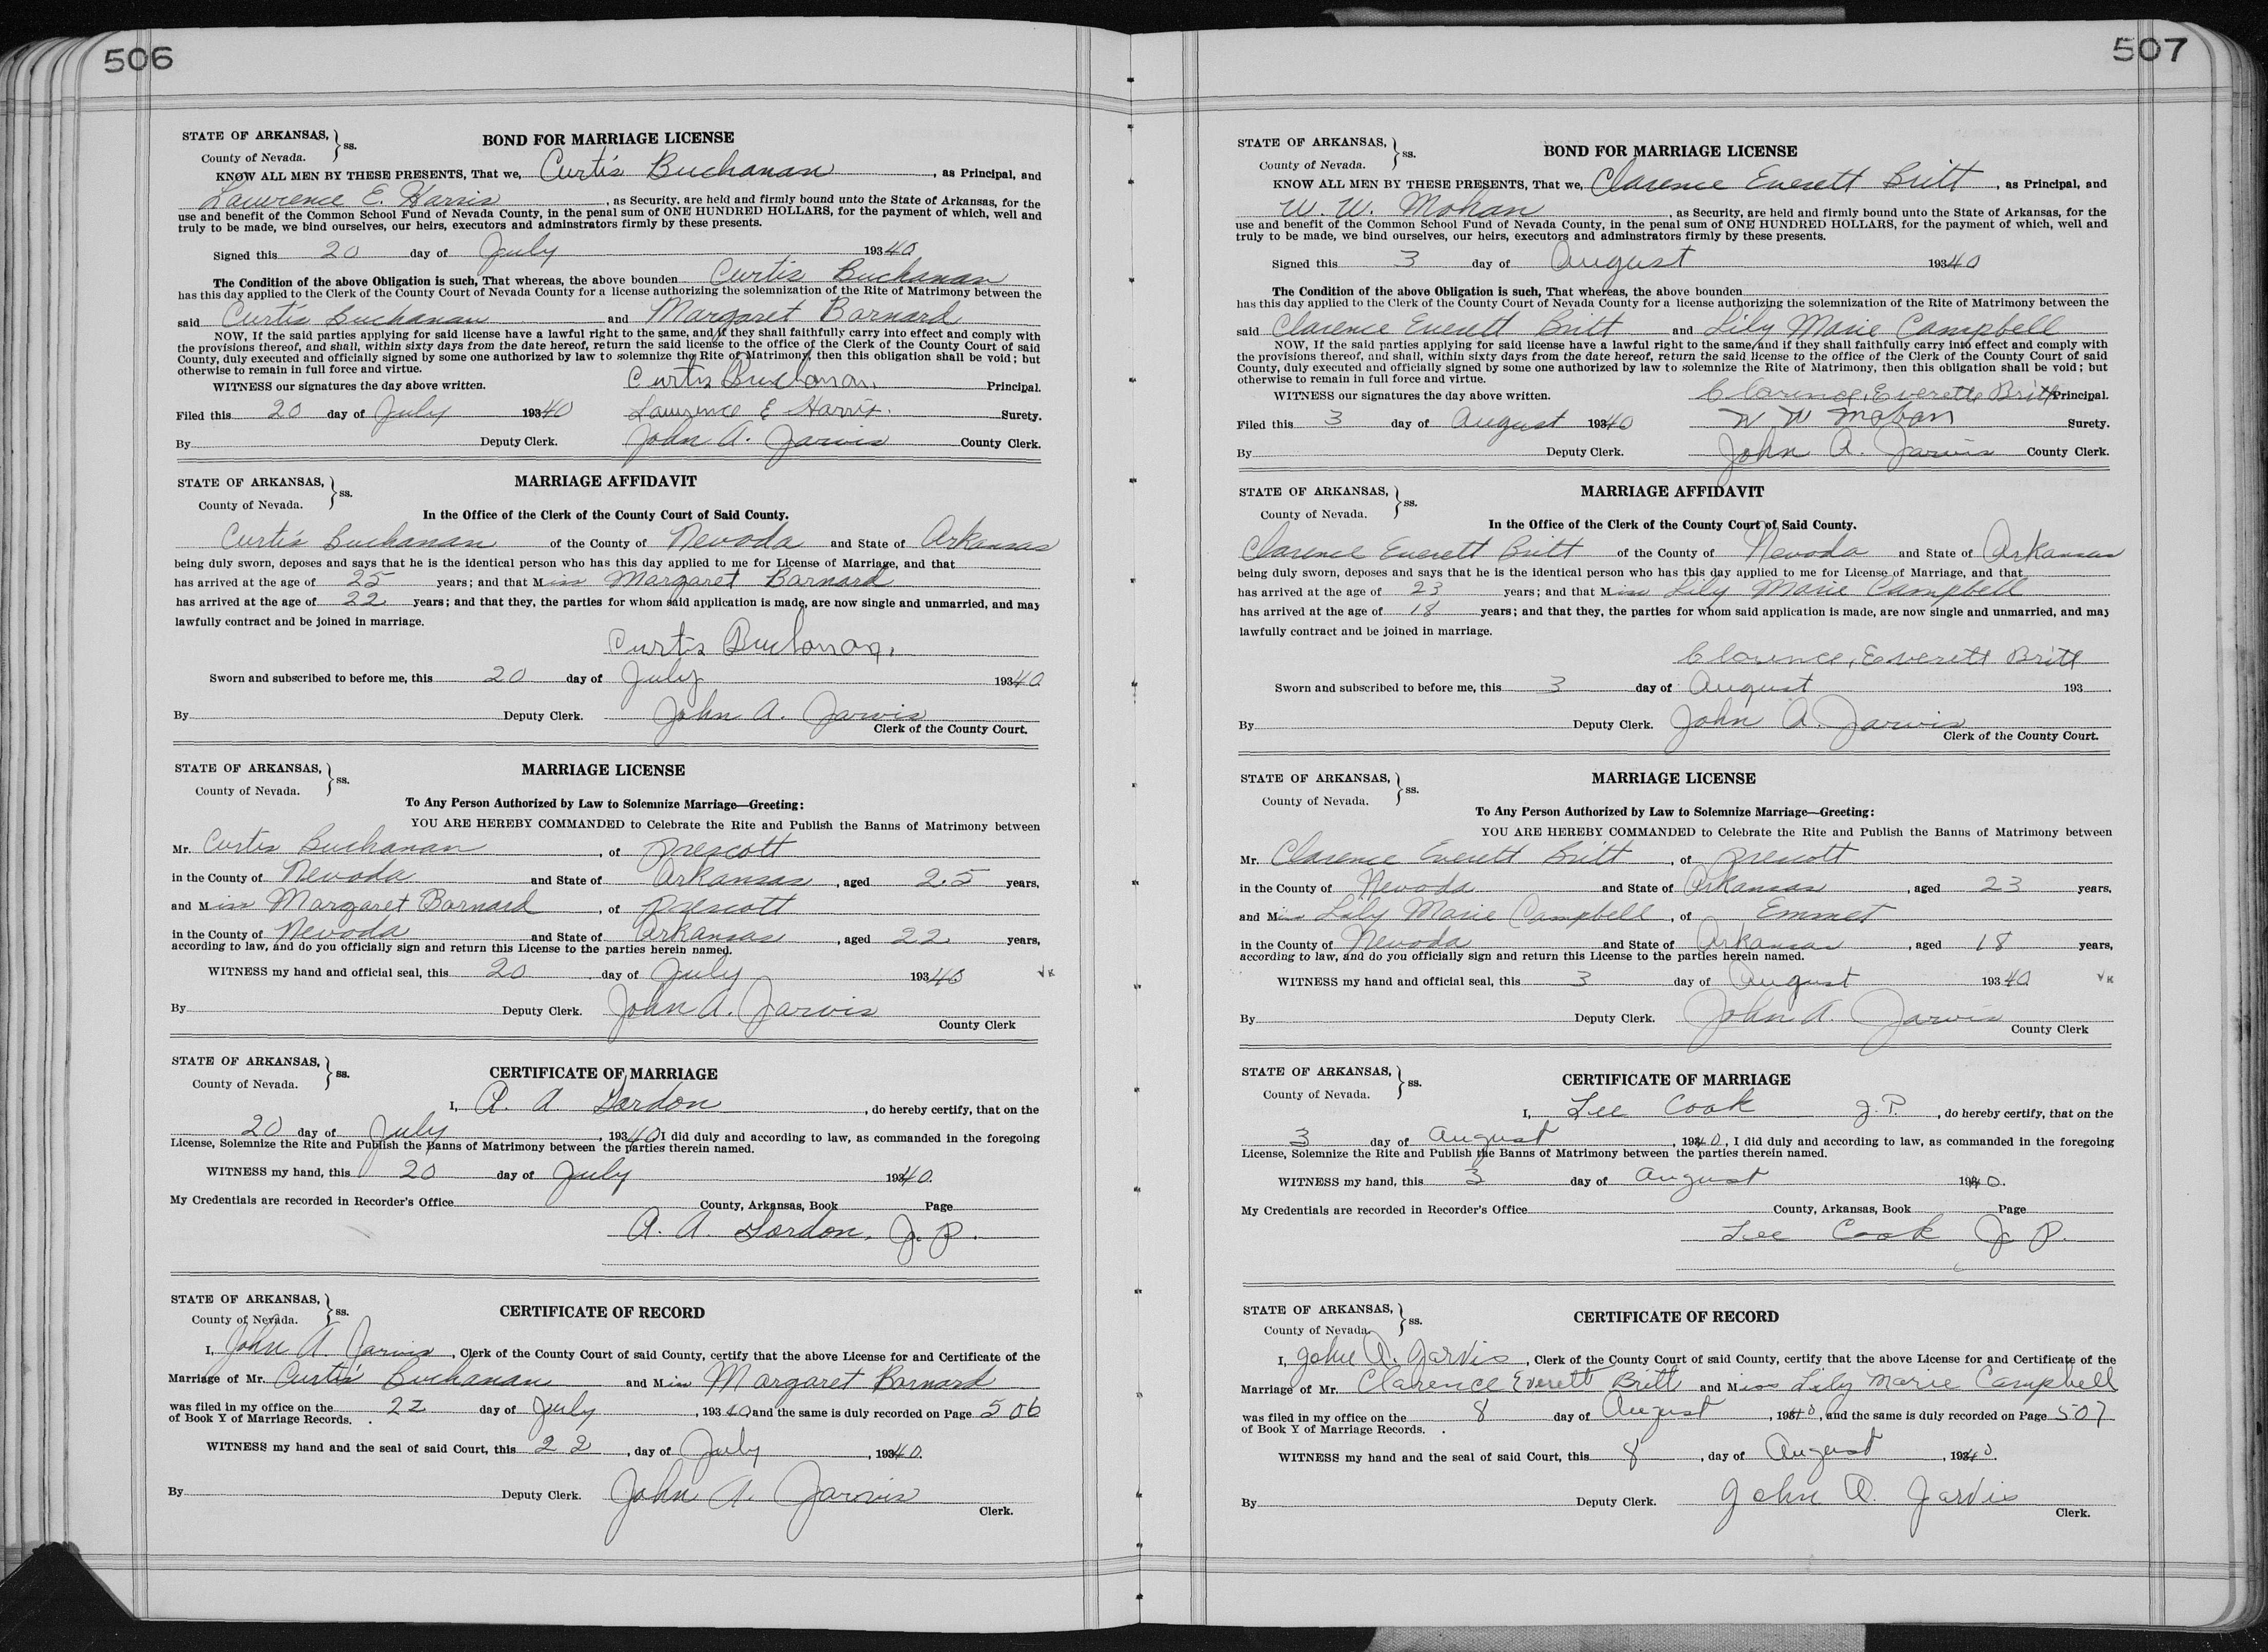 506
STATE OF ARKANSAS, } ss.
County of Nevada.
BOND FOR MARRIAGE LICENSE
KNOW ALL MEN BY THESE PRESENTS, That we, Curtis Buchanan, as Principal, and
Lawrence E. Harris, as Security, are held and firmly bound unto the State of Arkansas, for the
use and benefit of the Common School Fund of Nevada County, in the penal sum of ONE HUNDRED HOLLARS, for the payment of which, well and
truly to be made, we bind ourselves, our heirs, executors and adminstrators firmly by these presents.
Signed this 20 day of July 19340
The Condition of the above Obligation is such, That whereas, the above bounden Curtis Buchanan
has this day applied to the Clerk of the County Court of Nevada County for a license authorizing the solemnization of the Rite of Matrimony between the
said Curtis Buchanan and Margaret Barnard
NOW, If the said parties applying for said license have a lawful right to the same, and if they shall faithfully carry into effect and comply with
the provisions thereof, and shall, within sixty days from the date hereof, return the said license to the office of the Clerk of the County Court of said
County, duly executed and officially signed by some one authorized by law to solemnize the Rite of Matrimony, then this obligation shall be void; but
otherwise to remain in full force and virtue.
WITNESS our signatures the day above written. Curtis Buchanan. Principal.
Filed this 20 day of July 19340 Lawrence E Harris. Surety.
By Deputy Clerk. John A. Jarvis County Clerk.
STATE OF ARKANSAS, } ss.
County of Nevada.
MARRIAGE AFFIDAVIT
In the Office of the Clerk of the County Court of Said County.
Curtis Buchanan of the County of Nevada and State of Arkansas
being duly sworn, deposes and says that he is the identical person who has this day applied to me for License of Marriage, and that
has arrived at the age of 25 years; and that Miss Margaret Barnard
has arrived at the age of 22 years; and that they, the parties for whom said application is made, are now single and unmarried, and may
lawfully contract and be joined in marriage.
Curtis Buchanan.
Sworn and subscribed to before me, this 20 day of July 19340
By Deputy Clerk. John A. Jarvis
Clerk of the County Court.
STATE OF ARKANSAS, } ss.
County of Nevada.
MARRIAGE LICENSE
To Any Person Authorized by Law to Solemnize Marriage—Greeting:
YOU ARE HEREBY COMMANDED to Celebrate the Rite and Publish the Banns of Matrimony between
Mr. Curtis Buchanan, of Prescott
in the County of Nevada and State of Arkansas, aged 25 years,
and Miss Margaret Barnard, of Prescott
in the County of Nevada and State of Arkansas, aged 22 years,
according to law, and do you officially sign and return this License to the parties herein named.
WITNESS my hand and official seal, this 20 day of July 19340
By Deputy Clerk. John A. Jarvis
County Clerk
STATE OF ARKANSAS, } ss.
County of Nevada.
CERTIFICATE OF MARRIAGE
I, A. A. Gordon, do hereby certify, that on the
20 day of July, 19340 I did duly and according to law, as commanded in the foregoing
License, Solemnize the Rite and Publish the Banns of Matrimony between the parties therein named.
WITNESS my hand, this 20 day of July 19340.
My Credentials are recorded in Recorder's Office County, Arkansas, Book Page
A. A. Gordon, J. P.
STATE OF ARKANSAS, } ss.
County of Nevada.
CERTIFICATE OF RECORD
I, John A. Jarvis, Clerk of the County Court of said County, certify that the above License for and Certificate of the
Marriage of Mr. Curtis Buchanan and Miss Margaret Barnard
was filed in my office on the 22 day of July, 19340 and the same is duly recorded on Page 506
of Book Y of Marriage Records.
WITNESS my hand and the seal of said Court, this 22, day of July, 19340.
By Deputy Clerk. John A. Jarvis
Clerk.
507
STATE OF ARKANSAS, } ss.
County of Nevada.
BOND FOR MARRIAGE LICENSE
KNOW ALL MEN BY THESE PRESENTS, That we, Clarence Everett Britt, as Principal, and
W. W. Mohan, as Security, are held and firmly bound unto the State of Arkansas, for the
use and benefit of the Common School Fund of Nevada County, in the penal sum of ONE HUNDRED HOLLARS, for the payment of which, well and
truly to be made, we bind ourselves, our heirs, executors and adminstrators firmly by these presents.
Signed this 3 day of August 19340
The Condition of the above Obligation is such, That whereas, the above bounden
has this day applied to the Clerk of the County Court of Nevada County for a license authorizing the solemnization of the Rite of Matrimony between the
said Clarence Everett Britt and Lily Marie Campbell
NOW, If the said parties applying for said license have a lawful right to the same, and if they shall faithfully carry into effect and comply with
the provisions thereof, and shall, within sixty days from the date hereof, return the said license to the office of the Clerk of the County Court of said
County, duly executed and officially signed by some one authorized by law to solemnize the Rite of Matrimony, then this obligation shall be void; but
otherwise to remain in full force and virtue.
WITNESS our signatures the day above written. Clarence, Everette Britt Principal.
Filed this 3 day of August 19340 W W Mohan Surety.
By Deputy Clerk. John A. Jarvis County Clerk.
STATE OF ARKANSAS, } ss.
County of Nevada.
MARRIAGE AFFIDAVIT
In the Office of the Clerk of the County Court of Said County.
Clarence Everett Britt of the County of Nevada and State of Arkansas
being duly sworn, deposes and says that he is the identical person who has this day applied to me for License of Marriage, and that
has arrived at the age of 23 years; and that Miss Lily Marie Campbell
has arrived at the age of 18 years; and that they, the parties for whom said application is made, are now single and unmarried, and may
lawfully contract and be joined in marriage.
Clarence, Everett Britt
Sworn and subscribed to before me, this 3 day of August 193
By Deputy Clerk. John A. Jarvis
Clerk of the County Court.
STATE OF ARKANSAS, } ss.
County of Nevada.
MARRIAGE LICENSE
To Any Person Authorized by Law to Solemnize Marriage—Greeting:
YOU ARE HEREBY COMMANDED to Celebrate the Rite and Publish the Banns of Matrimony between
Mr. Clarence Everett Britt, of Prescott
in the County of Nevada and State of Arkansas, aged 23 years,
and Miss Lily Marie Campbell, of Emmet
in the County of Nevada and State of Arkansas, aged 18 years,
according to law, and do you officially sign and return this License to the parties herein named.
WITNESS my hand and official seal, this 3 day of August 19340
By Deputy Clerk. John A. Jarvis
County Clerk
STATE OF ARKANSAS, } ss.
County of Nevada.
CERTIFICATE OF MARRIAGE
I, Lee Cook J. P., do hereby certify, that on the
3 day of August, 1940, I did duly and according to law, as commanded in the foregoing
License, Solemnize the Rite and Publish the Banns of Matrimony between the parties therein named.
WITNESS my hand, this 3 day of August 1940.
My Credentials are recorded in Recorder's Office County, Arkansas, Book Page
Lee Cook J. P.
STATE OF ARKANSAS, } ss.
County of Nevada.
CERTIFICATE OF RECORD
I, John A. Jarvis, Clerk of the County Court of said County, certify that the above License for and Certificate of the
Marriage of Mr. Clarence Everett Britt and Miss Lily Marie Campbell
was filed in my office on the 8 day of August, 1940, and the same is duly recorded on Page 507
of Book Y of Marriage Records.
WITNESS my hand and the seal of said Court, this 8, day of August, 1940.
By Deputy Clerk. John A. Jarvis
Clerk.